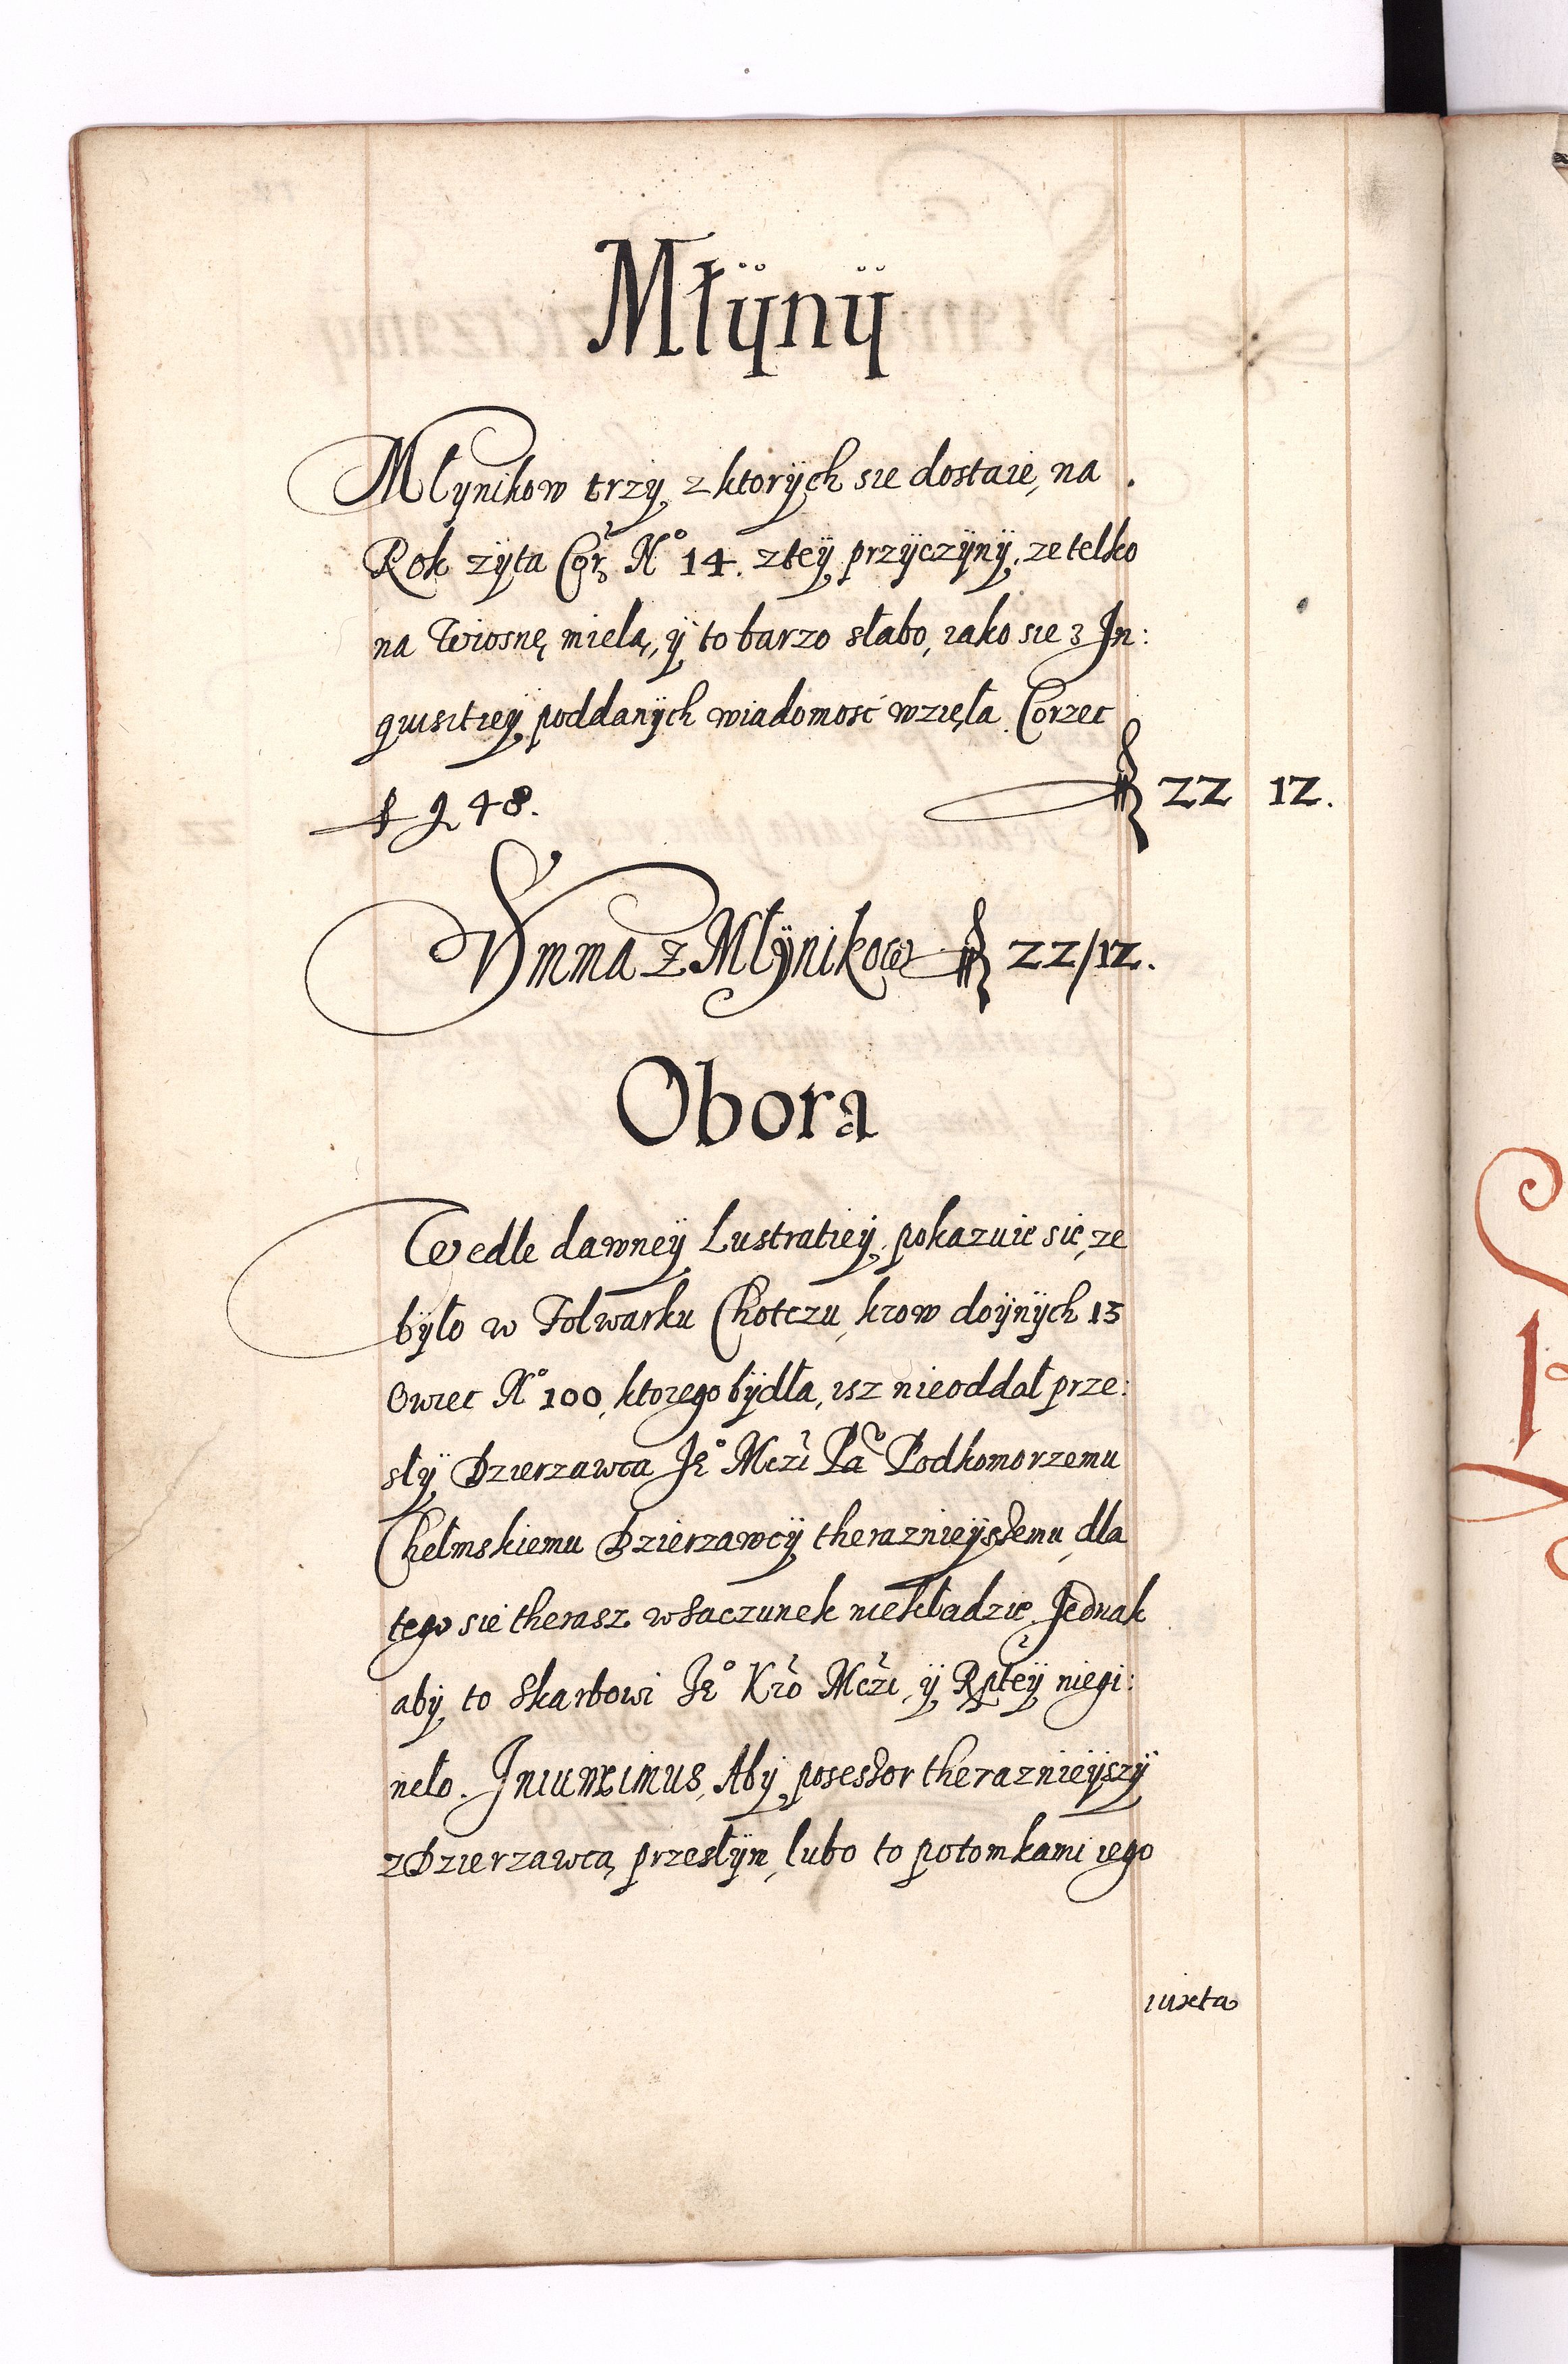 Młÿnÿ
Młynikow trzy z ktorÿch sie dostaie, na
Rok zÿta Cor̃ N° 14. ztey przÿczÿnÿ, ze telko
na Wiosnę mielą, ÿ to barzo słabo, iako sie z In:
quisitiey poddanÿch wiadomość wzięła. Corzec
48.
22 12.
Summa z Młÿnikow 22/12.
Obora
Wedle dawneÿ Lustratieÿ, pokazuie sie, ze
bÿło w Folwarku Chotczu, krow doÿnÿch 13
Owiec N° 100, ktorego bÿdła, isz nieoddał prze:
słÿ Dzierzawca Je° Mczi Pa Podkomorzemu
Chełmskiemu Dzierzawcÿ theraznieÿszemu, dla
tego sie therasz w saczunek niekładzie. Jednak
abÿ to Skarbowi Je° Kro Mczi, ÿ Rpteÿ niegi:
neło. Iniunximus, Abÿ posessor theraznieÿszÿ
z Dzierzawcą przesłÿm, lubo to potomkami iego
iuxta